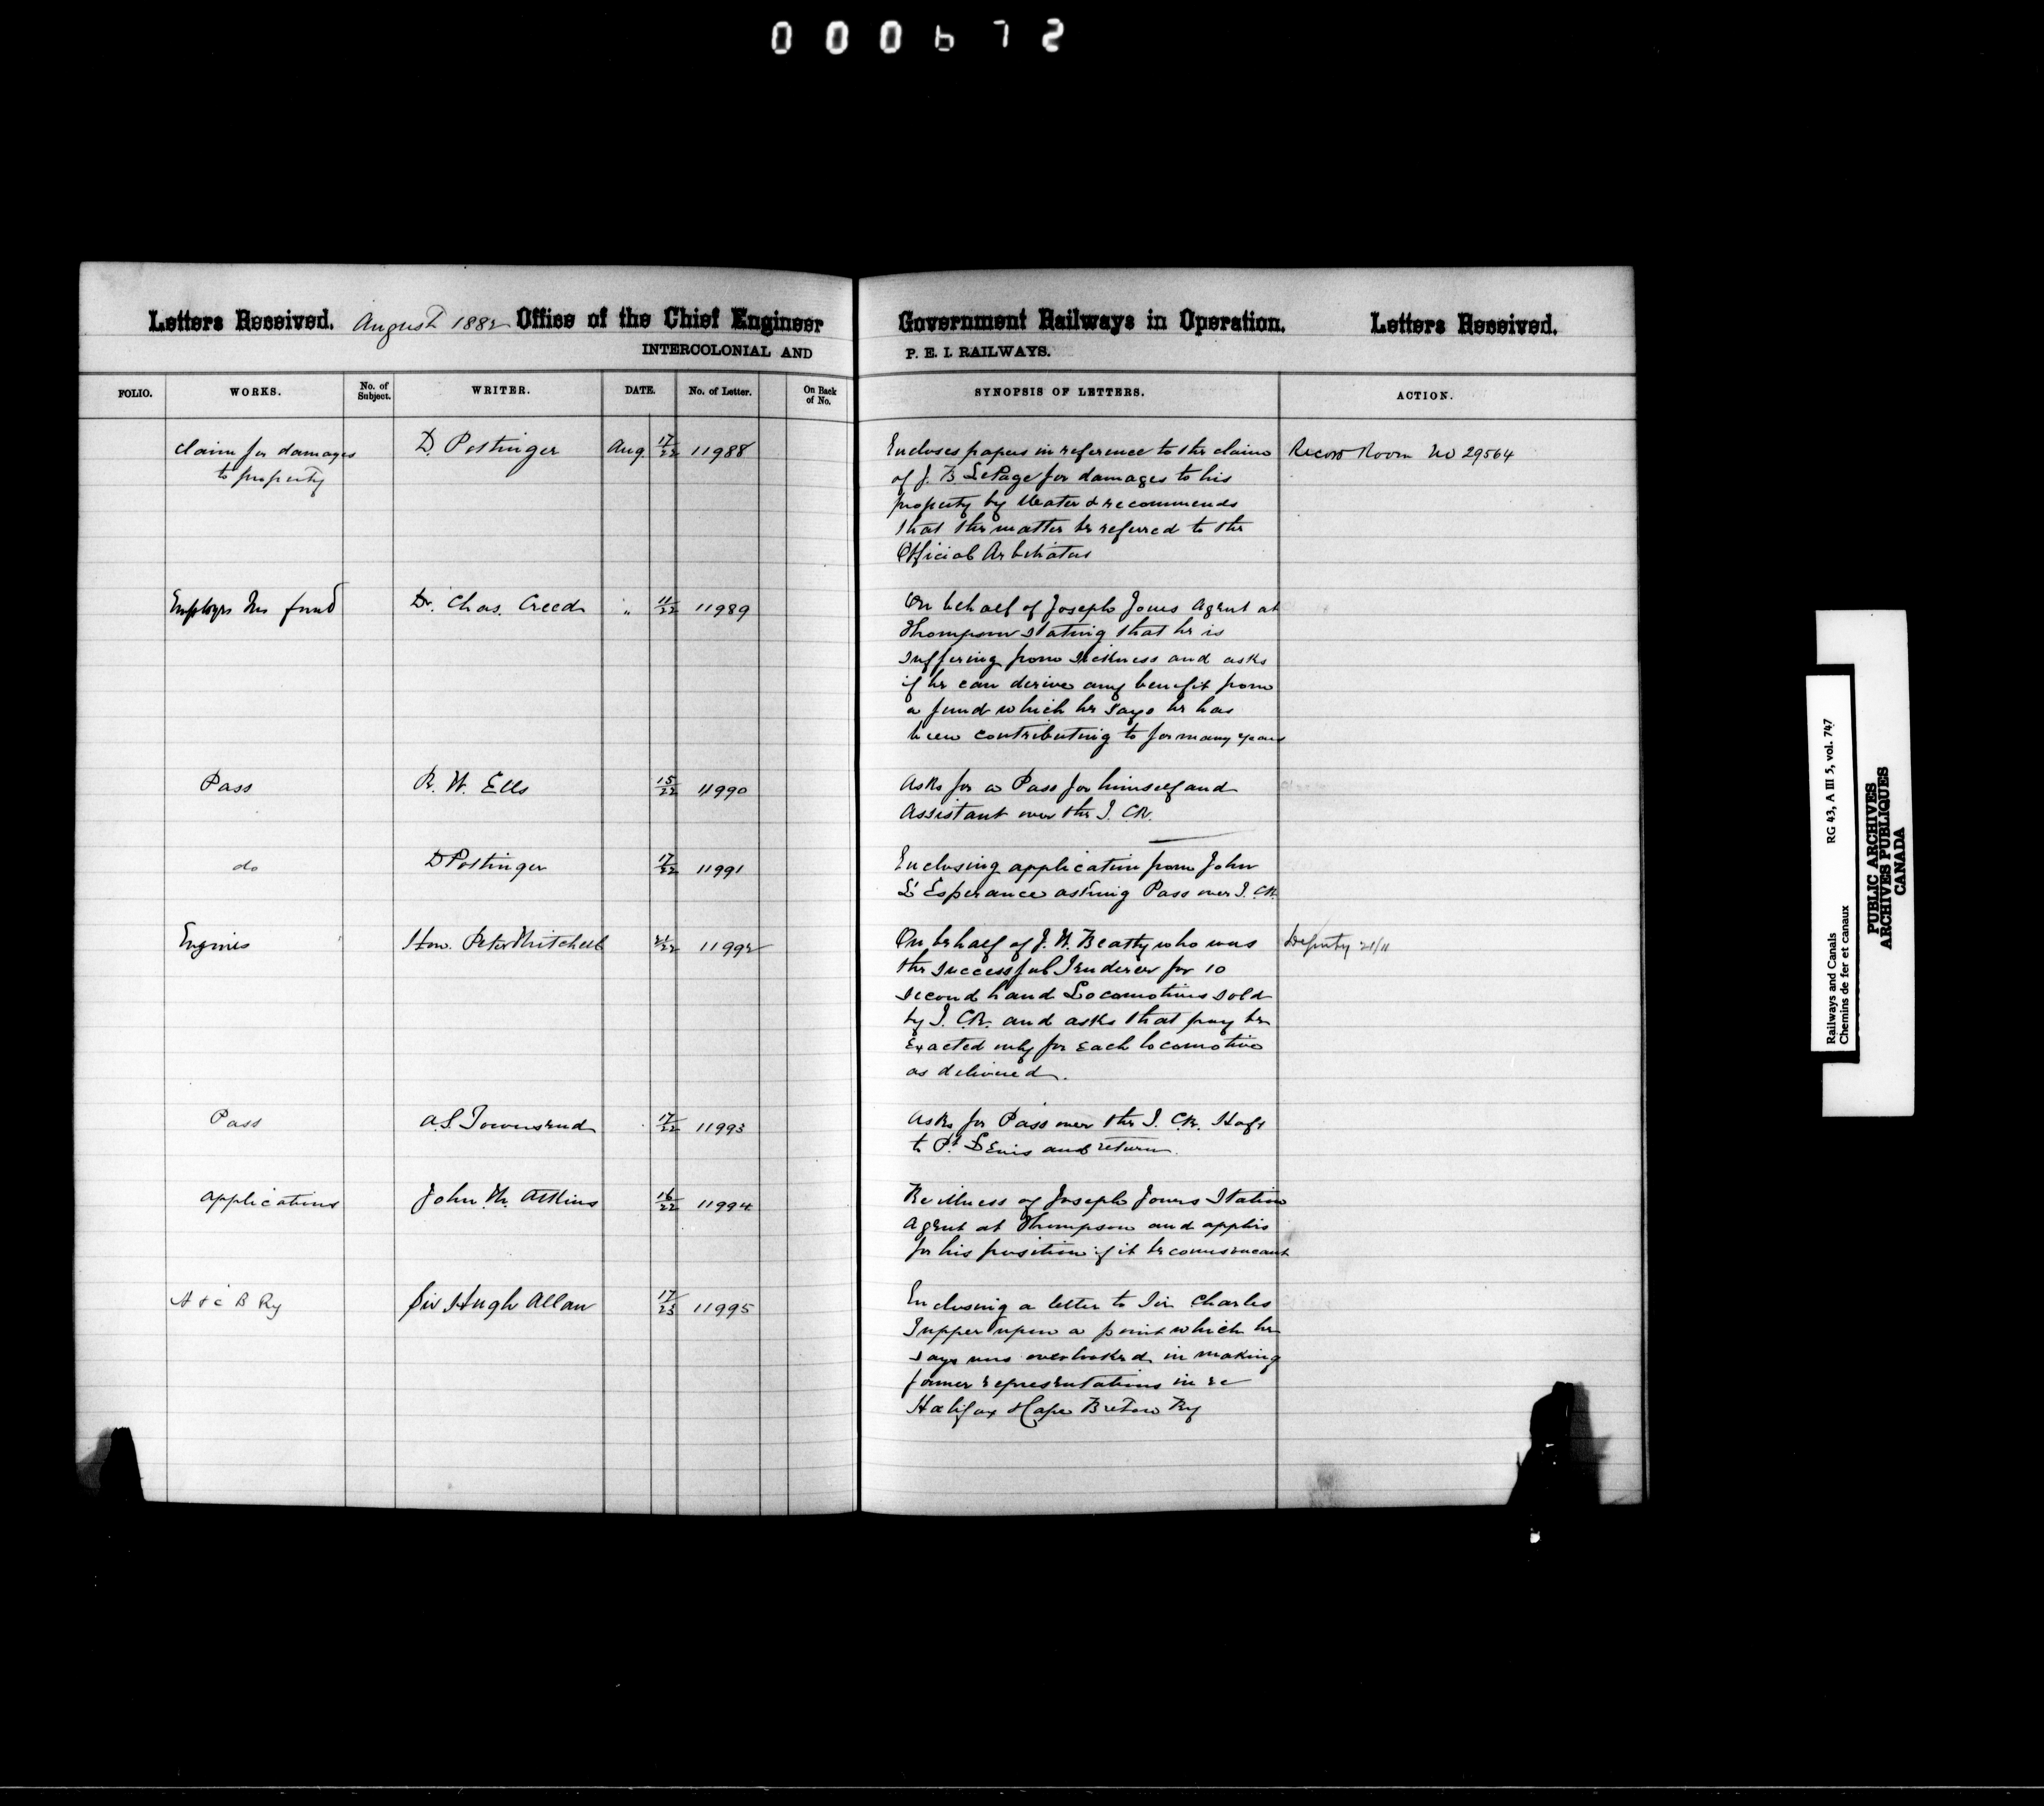 000672
Letters Received. August 1882 Office of the Chief Engineer Government Railways in Operation. Letters Received.
INTERCOLONIAL AND P. E. I. RAILWAYS.
FOLIO. WORKS. No. of Subject. WRITER. DATE. No. of Letter. On Back of No. SYNOPSIS OF LETTERS. ACTION.
Claim for damages D. Pottinger Aug 17/22 11988 Encloses papers in reference to the claim Record Room No 29564
to property of J. B LePage for damages to his
property by Water & recommends
that the matter be referred to the
Official Arbitrators
Employes Ins fund Dr. Chas. Creed " 11/22 11989 On behalf of Joseph Jones Agent at
Thompson stating that he is
suffering from sickness and asks
if he can derive any benefit from
a fund which he says he has
been contributing to for many years
Pass R. W. Ells 15/22 11990 Asks for a Pass for himself and
Assistant over the I. CR.
do D Pottinger 17/22 11991 Enclosing application from John
L'Esperance asking Pass over I. CR.
Engines Hon. Peter Mitchell 21/22 11992 On behalf of J. W. Beatty who was Deputy 21/11
the successful Tenderer for 10
second hand Locomotives sold
by I. CR. and asks that pay be
exacted only for each locomotive
as delivered.
Pass A.S. Townsend 17/22 11993 Asks for Pass over the I. CR. Hafx
to Pt Levis and return.
Applications John M. Atkins 16/22 11994 Re illness of Joseph Jones Station
Agent at Thompson and applies
for his position if it becomes vacant
H & C B Ry Sir Hugh Allan 17/23 11995 Enclosing a letter to Sir Charles
Tupper upon a point which he
says was overlooked in making
former representations in re
Halifax & Cape Breton Ry
Railways and Canals RG 43, A III 5, vol. 747
Chemins de fer et canaux
PUBLIC ARCHIVES
ARCHIVES PUBLIQUES
CANADA